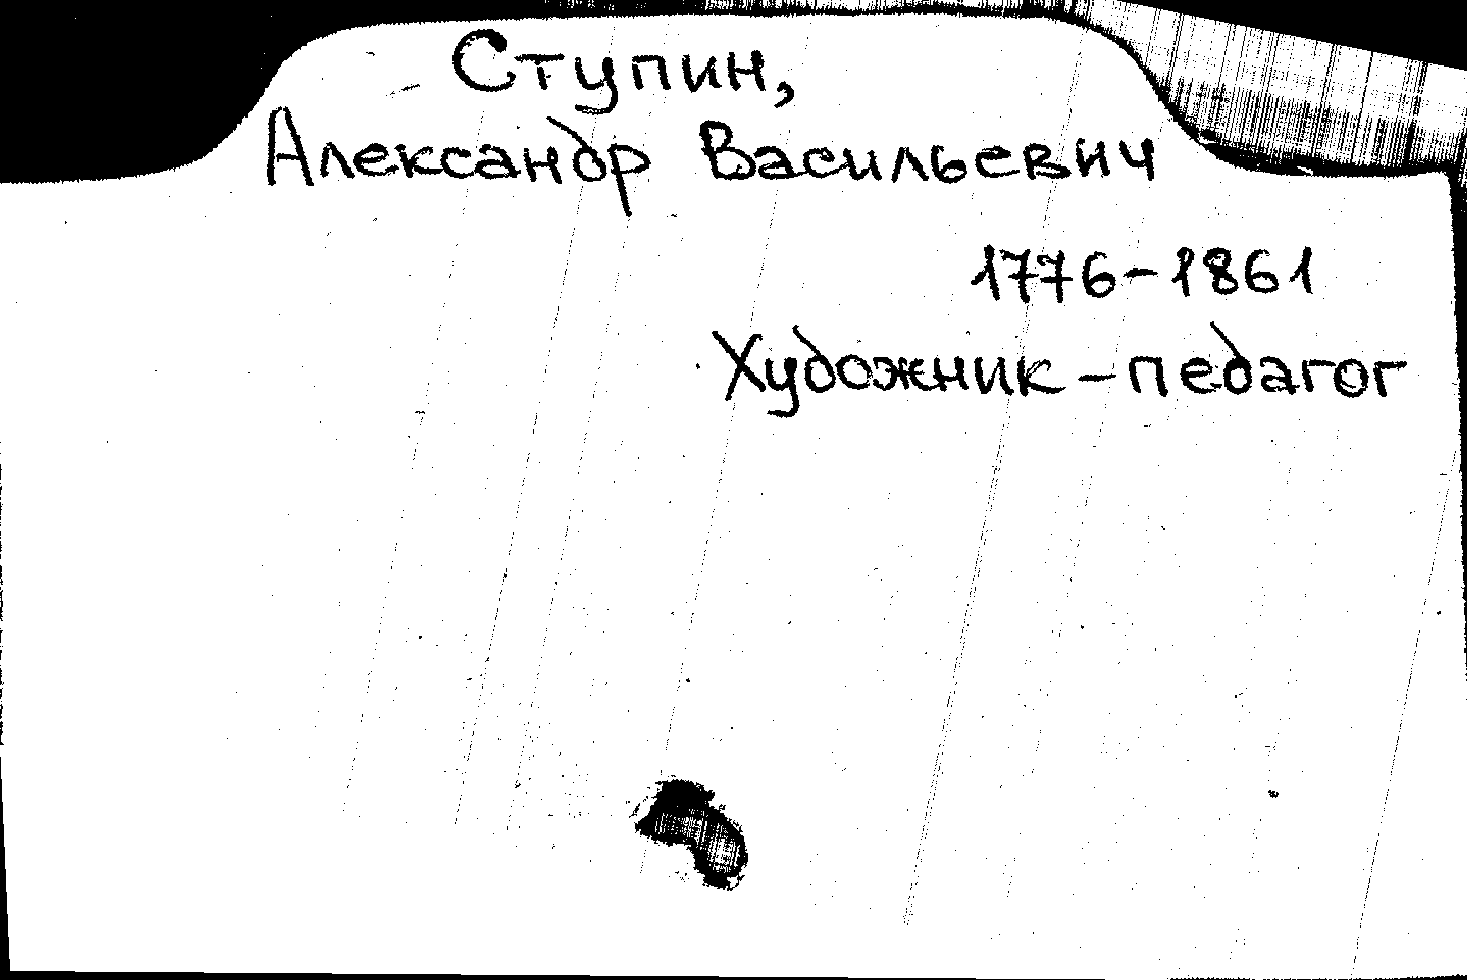 Ступин,
Александр Васильевич
1776-1861
Художник-педагог